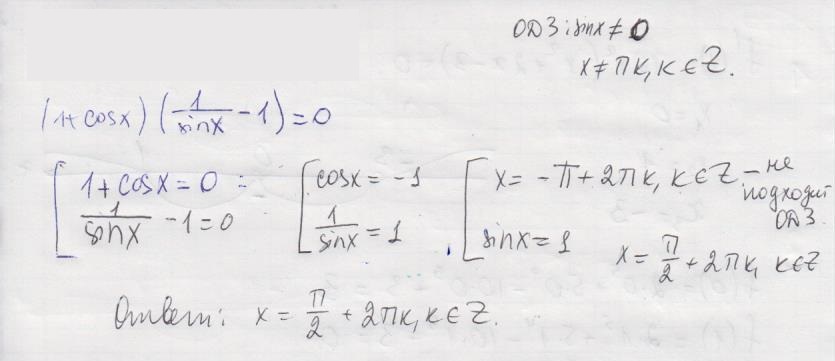 ОДЗ: sinx ≠ 0
x ≠ πk, k ∈ Z.
(1+cosx)(1/sinx - 1) = 0
[ 1+cosx = 0
1/sinx - 1 = 0
[ cosx = -1
1/sinx = 1
, [ x = -π + 2πk, k ∈ Z – не подходит ОДЗ.
sinx = 1
x = π/2 + 2πk, k ∈ Z
Ответ: x = π/2 + 2πk, k ∈ Z.